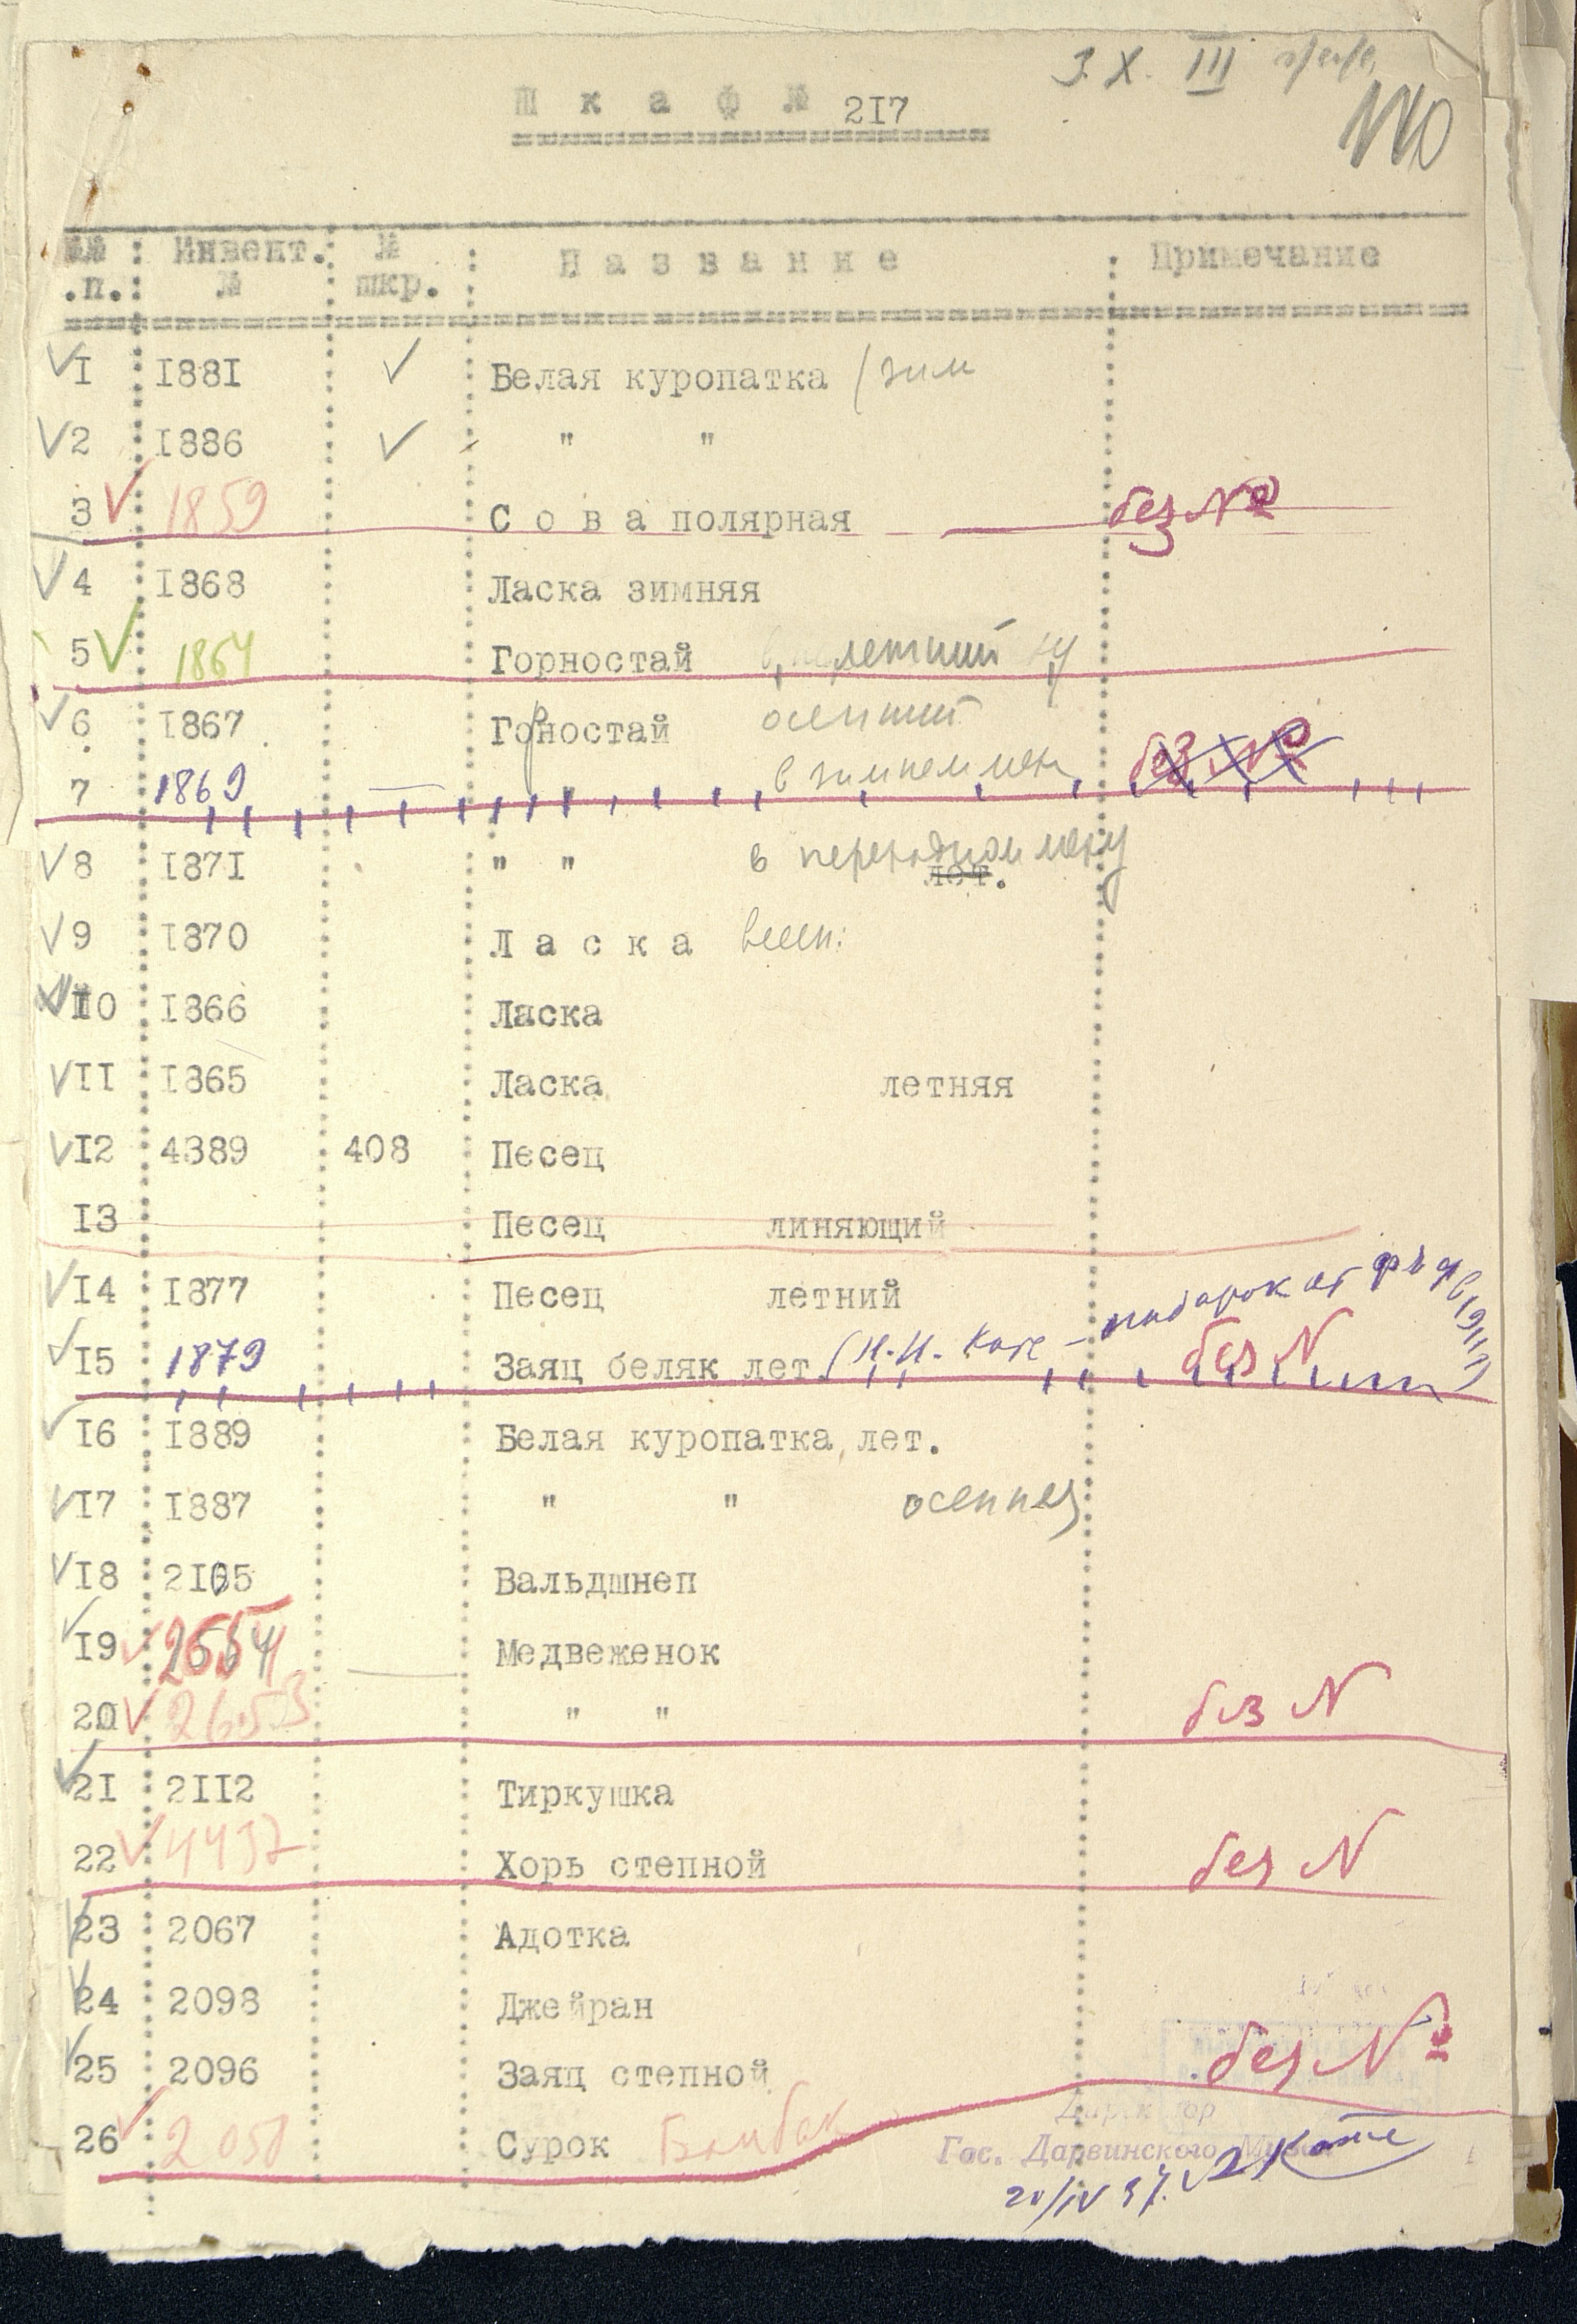 3. X. III
Шкаф № 217
№№ п. Инвент. № № шкр. Название Примечание
1 1881 Белая куропатка / зим
2 1886 " "
3 1859 Сова полярная без №
4 1868 Ласка зимняя
5 1864 Горностай летний
6 1867 Горностай осенний
7 1869 " в зимнем меху без №
8 1871 " " в переходном меху лет.
9 1870 Ласка весен:
10 1866 Ласка
11 1865 Ласка летняя
12 4389 408 Песец
13 Песец линяющий
14 1877 Песец летний
15 1879 Заяц беляк лет. (Н.Н. Котс – подарок от без N
16 1889 Белая куропатка, лет.
17 1887 " " осенняя
18 2105 Вальдшнеп
19 2654 Медвеженок
20 2653 " " без N
21 2112 Тиркушка
22 4437 Хорь степной без N
23 2067 Адотка
24 2098 Джейран
25 2096 Заяц степной без №
26 2058 Сурок Бамбак
Директор
Гос. Дарвинского Музея Котс
20/IV 37.